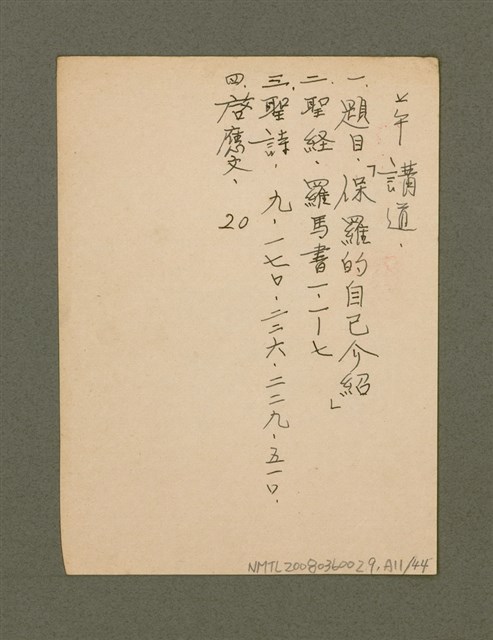 上午講道.
一.題目.「保羅的自己介紹」
二.聖経.羅馬書一.1-七
三.聖詩.九.一七〇.二二六.二二九.五一〇.
四.啓應文.20
NMTL20080360029.A11/44